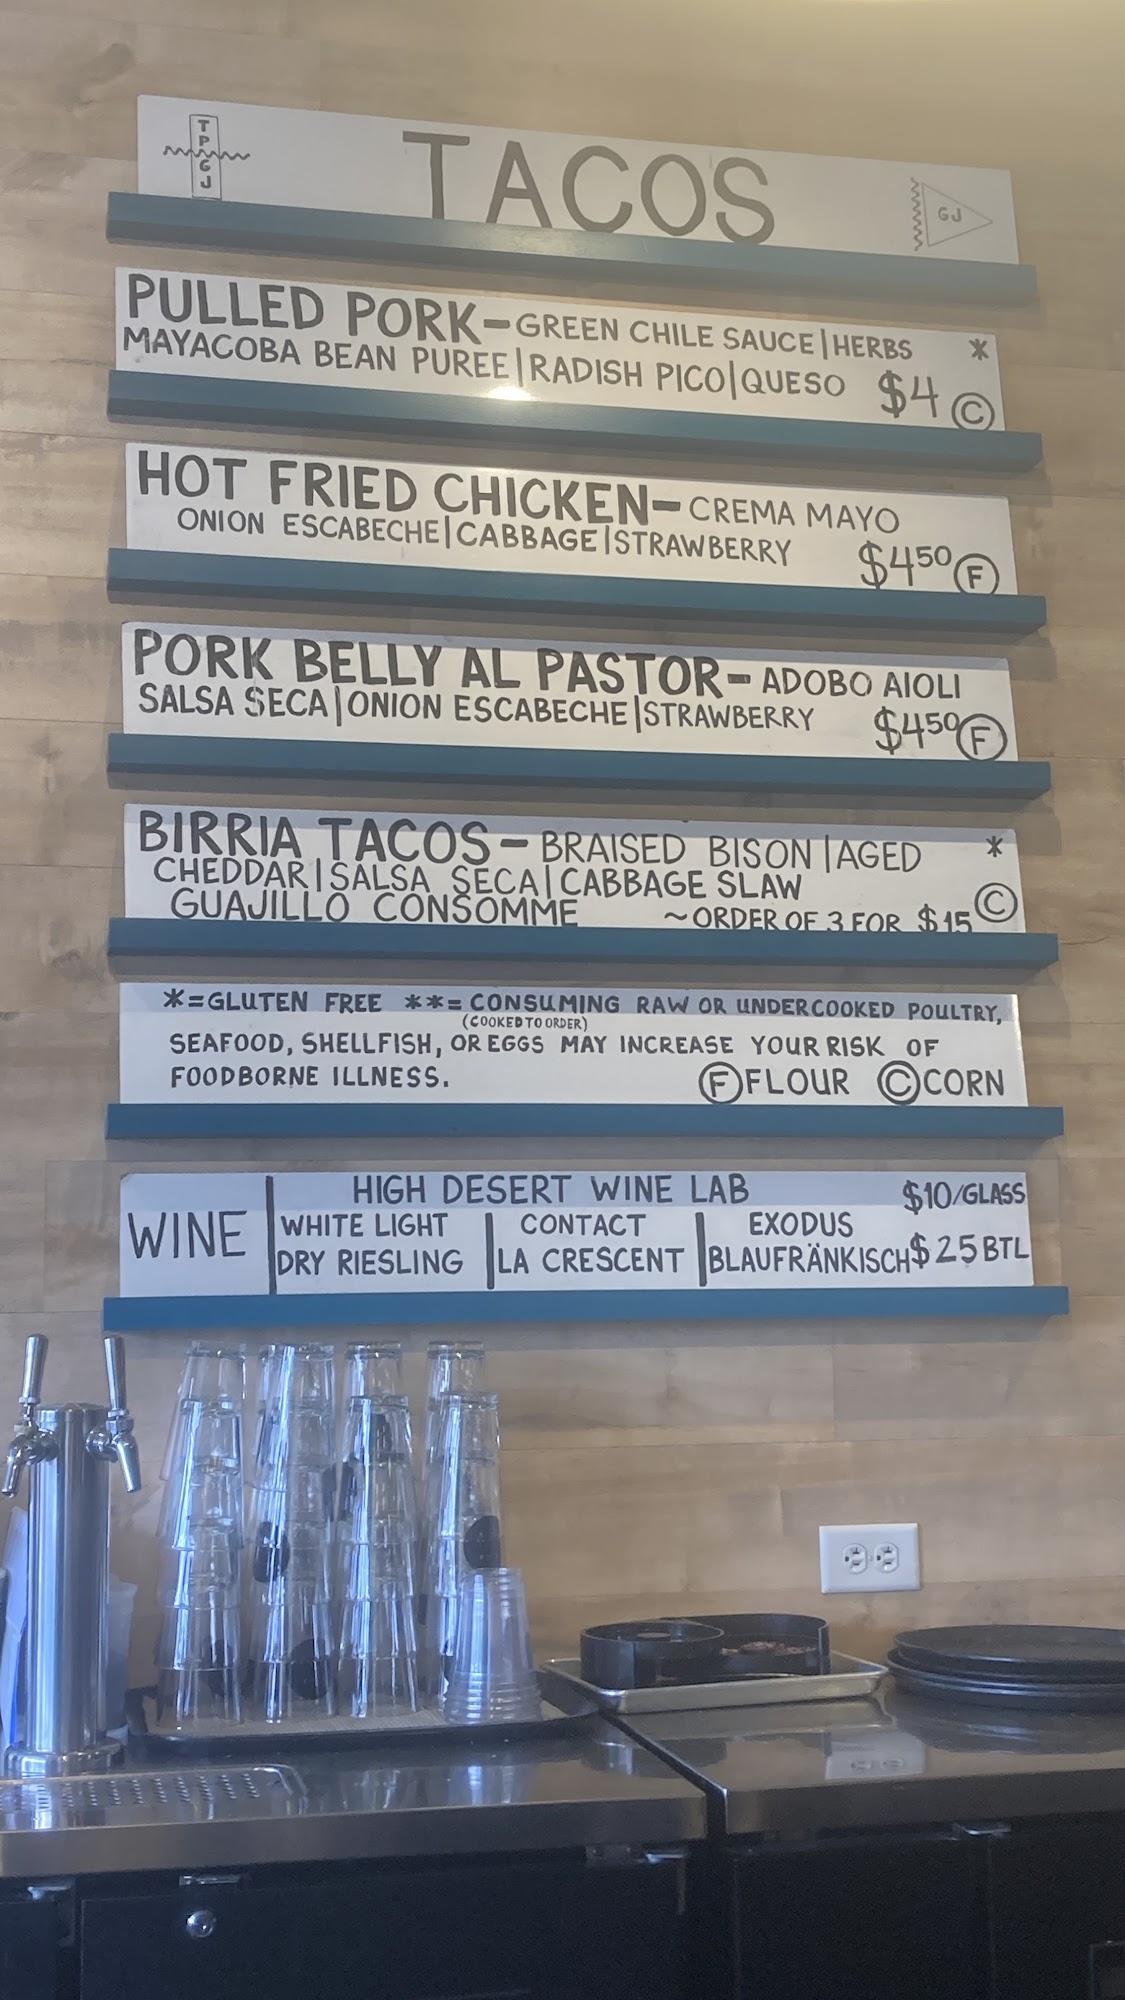 TPGJ
TACOS
GJ
PULLED PORK-GREEN CHILE SAUCE|HERBS *
MAYACOBA BEAN PUREE|RADISH PICO|QUESO $4 Ⓒ
HOT FRIED CHICKEN-CREMA MAYO
ONION ESCABECHE|CABBAGE|STRAWBERRY $4⁵⁰ Ⓕ
PORK BELLY AL PASTOR-ADOBO AIOLI
SALSA SECA|ONION ESCABECHE|STRAWBERRY $4⁵⁰ Ⓕ
BIRRIA TACOS-BRAISED BISON|AGED *
CHEDDAR|SALSA SECA|CABBAGE SLAW
GUAJILLO CONSOMME ~ORDER OF 3 FOR $15 Ⓒ
*=GLUTEN FREE **=CONSUMING RAW OR UNDERCOOKED POULTRY,
(COOKED TO ORDER)
SEAFOOD, SHELLFISH, OR EGGS MAY INCREASE YOUR RISK OF
FOODBORNE ILLNESS. ⒻFLOUR ⒸCORN
WINE
HIGH DESERT WINE LAB $10/GLASS
WHITE LIGHT | CONTACT | EXODUS
DRY RIESLING | LA CRESCENT | BLAUFRÄNKISCH $25 BTL